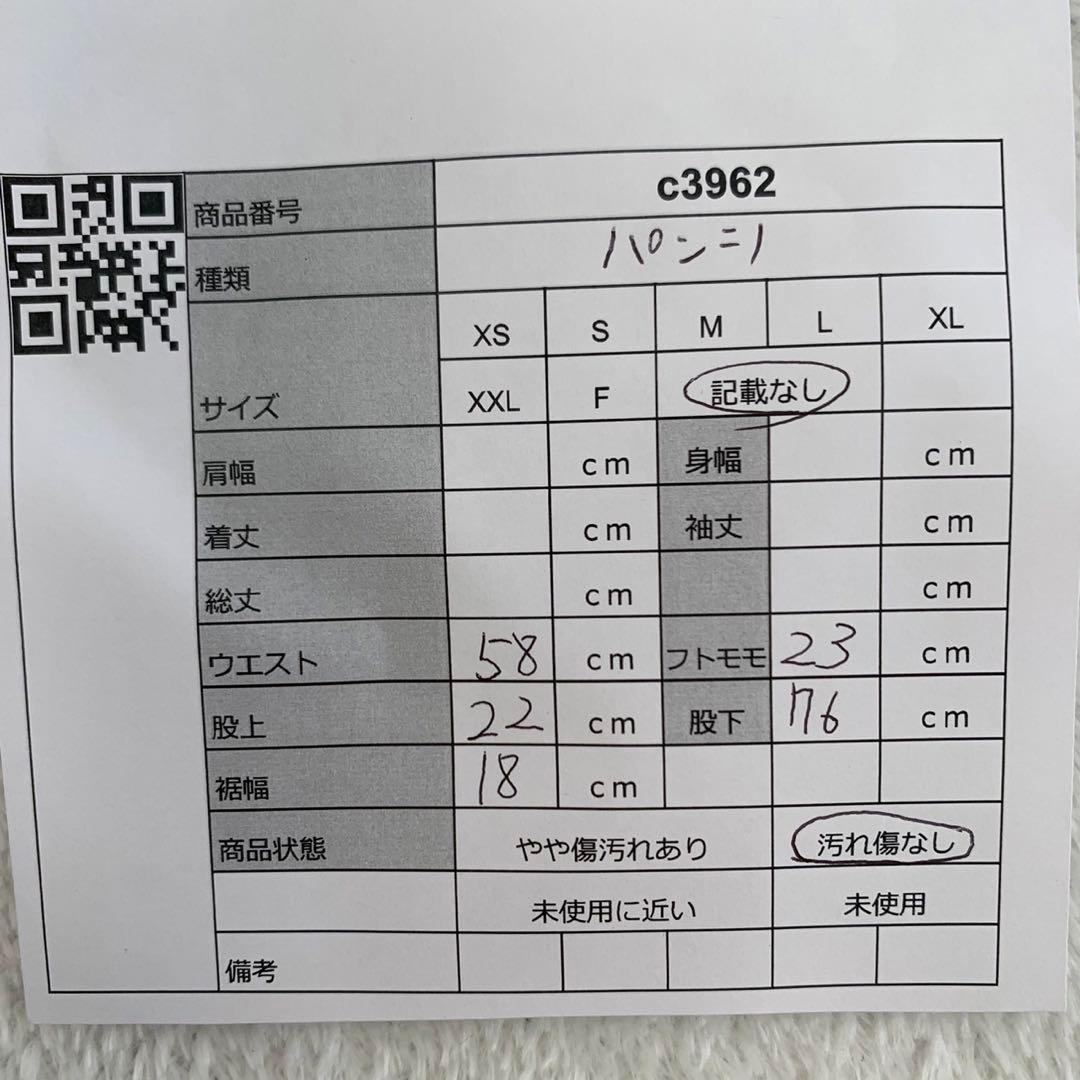 商品番号 c3962
種類 パンニ
サイズ XS S M L XL
XXL F 記載なし
肩幅 cm 身幅 cm
着丈 cm 袖丈 cm
総丈 cm cm
ウエスト 58 cm フトモモ 23 cm
股上 22 cm 股下 76 cm
裾幅 18 cm
商品状態 やや傷汚れあり 汚れ傷なし
未使用に近い 未使用
備考